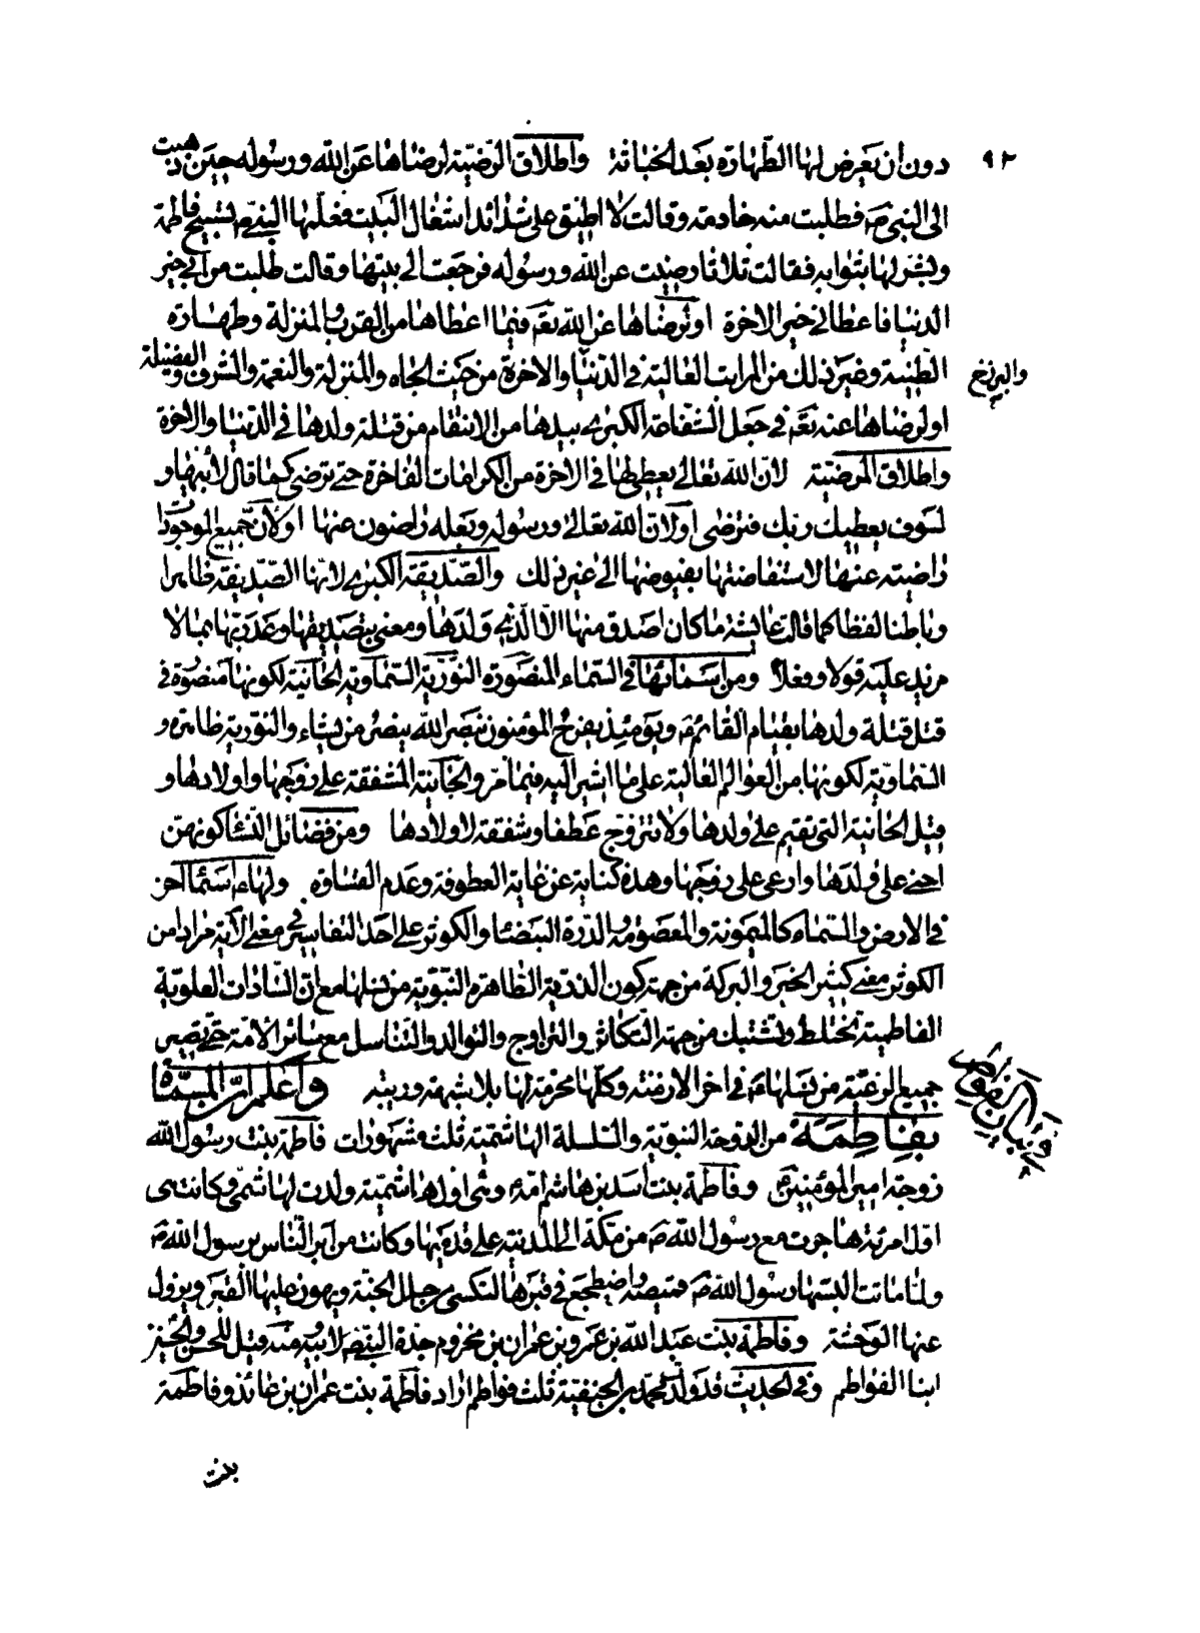 ٩٢
دون ان يعرض لها الطهارة بعد الخباثة واطلاق الرّضيّة لرضاها عن الله ورسوله حين ذهبت
الى النبي ص فطلبت منه خادمة وقالت لا اطيق على شدائد اشغال البيت فعلّمها النبي ص تسبيح فاطمة
وبشر لها بثوابه فقالت ثلاثا رضيت عن الله ورسوله فرجعت الى بيتها وقالت طلبت من ابي خير
الدنيا فاعطاني خير الاخرة او لرضاها عن الله تع فيما اعطاها من القرب والمنزلة وطهارة
الطينة وغير ذلك من المراتب العالية في الدنيا والاخرة من حيث الجاه والمنزلة والنعمة والشرف والفضيلة
والبرزخ
او لرضاها عنه تع في جعل الشفاعة الكبرى بيدها من الانتقام من قتلة ولدها في الدنيا والاخرة
واطلاق المرضيّة لان الله تعالى يعطى لها في الاخرة من الكرامات الفاخرة حتى ترضى كما قال لابيها و
لسوف يعطيك ربك فترضى او لان الله تعالى ورسوله وبعله راضون عنها او لان جميع الموجودات
راضية عنها لاستفاضتها بفيوضها الى غير ذلك والصّديقة الكبرى لانها الصّديقة ظاهرا
وباطنا لفظا كما قالت عايشة ما كان اصدق منها الا الذي ولدها ومعنى بتصديقها وعد ربّها بما لا
مزيد عليه قولا وفعلا ومن اسمائها في السماء المنصورة النّوريّة السّماويّة الحانية لكونها منصورة في
قتل قتلة ولدها بقيام القائم ع ويومئذ يفرح المؤمنون بنصر الله ينصر من يشاء والنورية ظاهرة و
السّماويّة لكونها من العوالم العالية على ما اشير اليه فيما مرّ والحانية المشفقة على زوجها واولادها و
قيل الحانية التي تقيم على ولدها ولا تتزوج عطفا وشفقة لاولادها ومن فضائل النساء كونهن
احنى على ولدها وارعى على زوجها وهذه كناية عن غاية العطوفة وعدم القساوة ولها ع اسماء اخر
في الارض والسماء كالميمونة والمعصومة والدّرة البيضاء والكوثر على احد التفاسير في معنى الآية مرادا من
الكوثر معنى كثير الخير والبركة من جهة كون الذرية الطاهرة النّبويّة من نسلها مع ان السّادات العلويّة
الفاطمية تختلط وتشتبك من جهة التكاثر والتزاوج والتوالد والتناسل مع سائر الامّة حتى يصير
جميع الرعيّة من نسلها ع في اخر الازمنة وكلها محرمة لها بلا شبهة وريبة واعلم ان المسمّاة
في بيان الفواطم
بفاطمة من الدوحة النبويّة والسلسلة الهاشمية ثلث مشهورات فاطمة بنت رسول الله
زوجة امير المؤمنين ع وفاطمة بنت اسد بن هاشم امّه وهي اول هاشميّة ولدت لهاشمي وكانت هى
اول امرئة هاجرت مع رسول الله ص من مكّة الى المدينة على قدميها وكانت من ابرّ الناس برسول الله ص
ولما ماتت البسها رسول الله ص قميصه واضطجع في قبرها لتكسى من حلل الجنّة ويهون عليها القبر ويزول
عنها الوحشة وفاطمة بنت عبد الله بن عمرو بن عمران بن مخزوم جدة النبي ص لابيه ومنه قيل للحسن والحسين
ابنا الفواطم وفي الحديث قد ولد محمد بن الحنفية ثلث فواطم اراد فاطمة بنت عمران بن عائذ وفاطمة
بنت